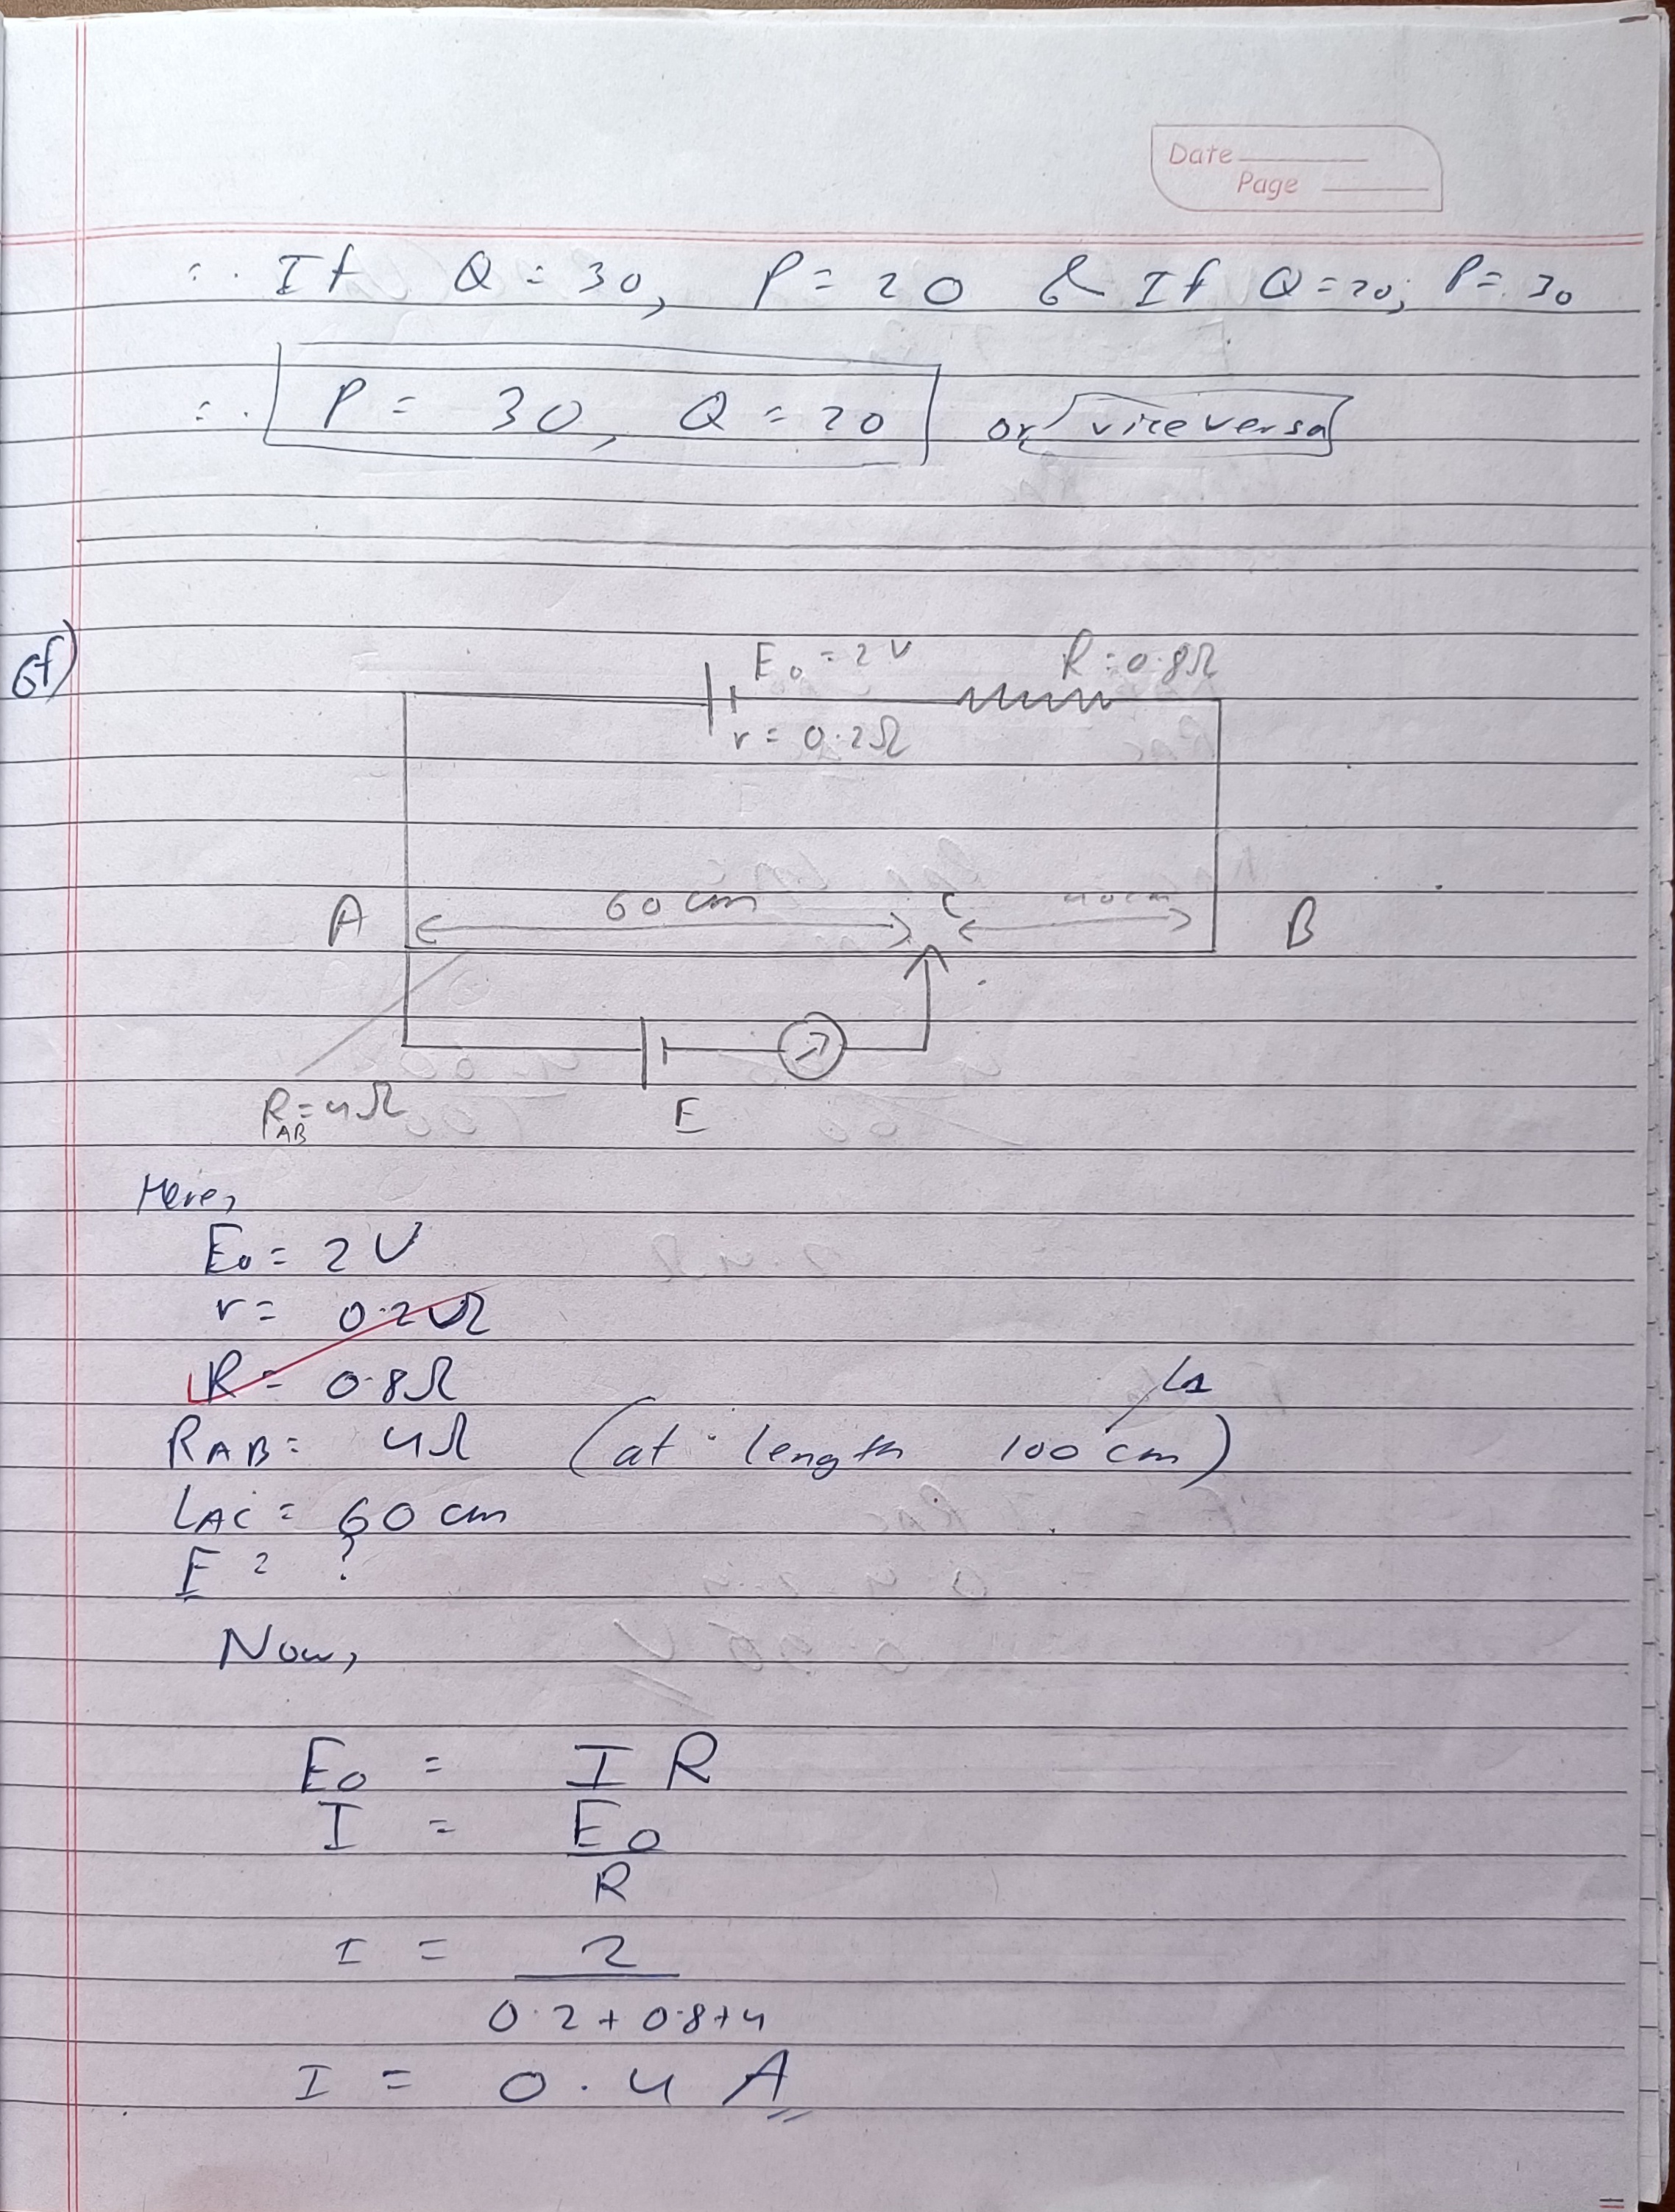 Date
Page
∴ If Q = 30, P = 20 & If Q = 20; P = 30
∴ P = 30, Q = 20 or vice versa
6f)
E₀ = 2 V R = 0.8Ω
r = 0.2Ω
A 60 cm C 40 cm B
R_AB = 4Ω E
Here,
E₀ = 2 V
r = 0.2Ω
R = 0.8Ω
R_AB = 4Ω (at length 100 cm)
L_AC = 60 cm
E = ?
Now,
E₀ = I R
I = E₀
R
I = 2
0.2 + 0.8 + 4
I = 0.4 A